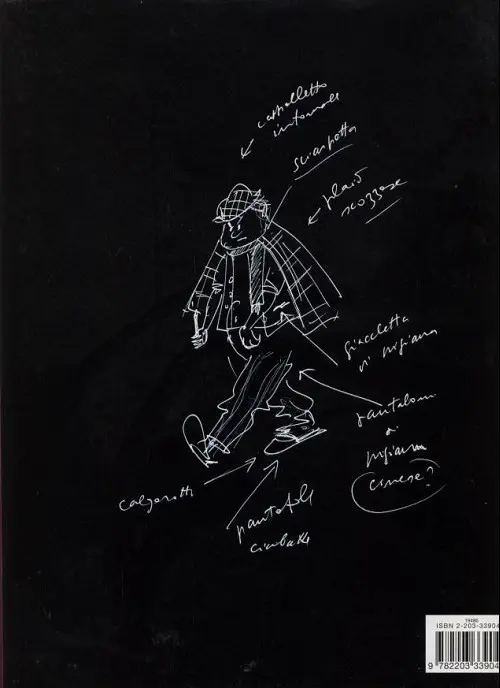 cappelletto
invernale
sciarpetta
plaid
scozzese
giacchetta
di pigiama
pantaloni
di
pigiama
cenere?
calzerotti
pantofole
ciabatte
19486
ISBN 2-203-33904
9 782203 33904